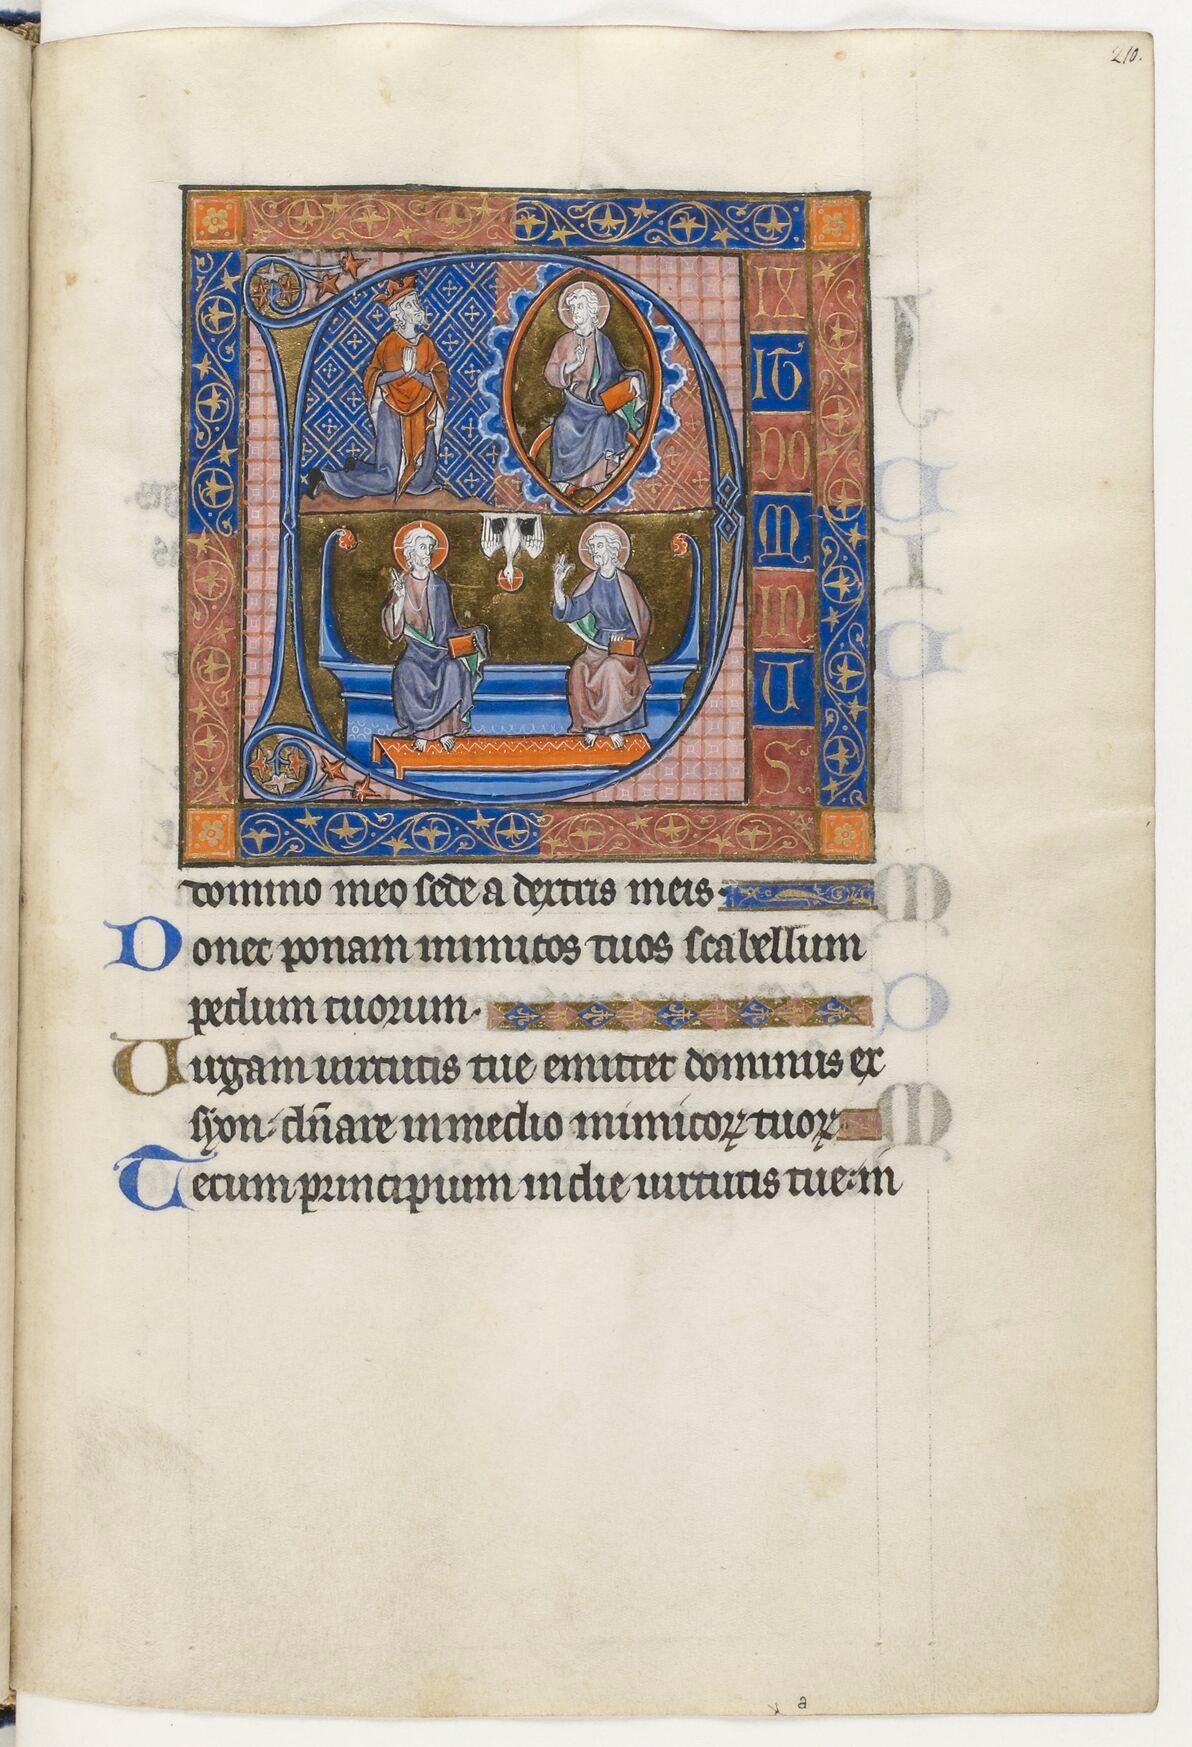 210.
D
IX
IT
DO
M
IN
U
S
domino meo sede a dextris meis.
Donec ponam inimicos tuos scabellum
pedum tuorum.
Uirgam uirtutis tue emittet dominus ex
syon: dn̄are in medio inimicoꝝ tuoꝝ
Tecum principium in die uirtutis tue: in
a